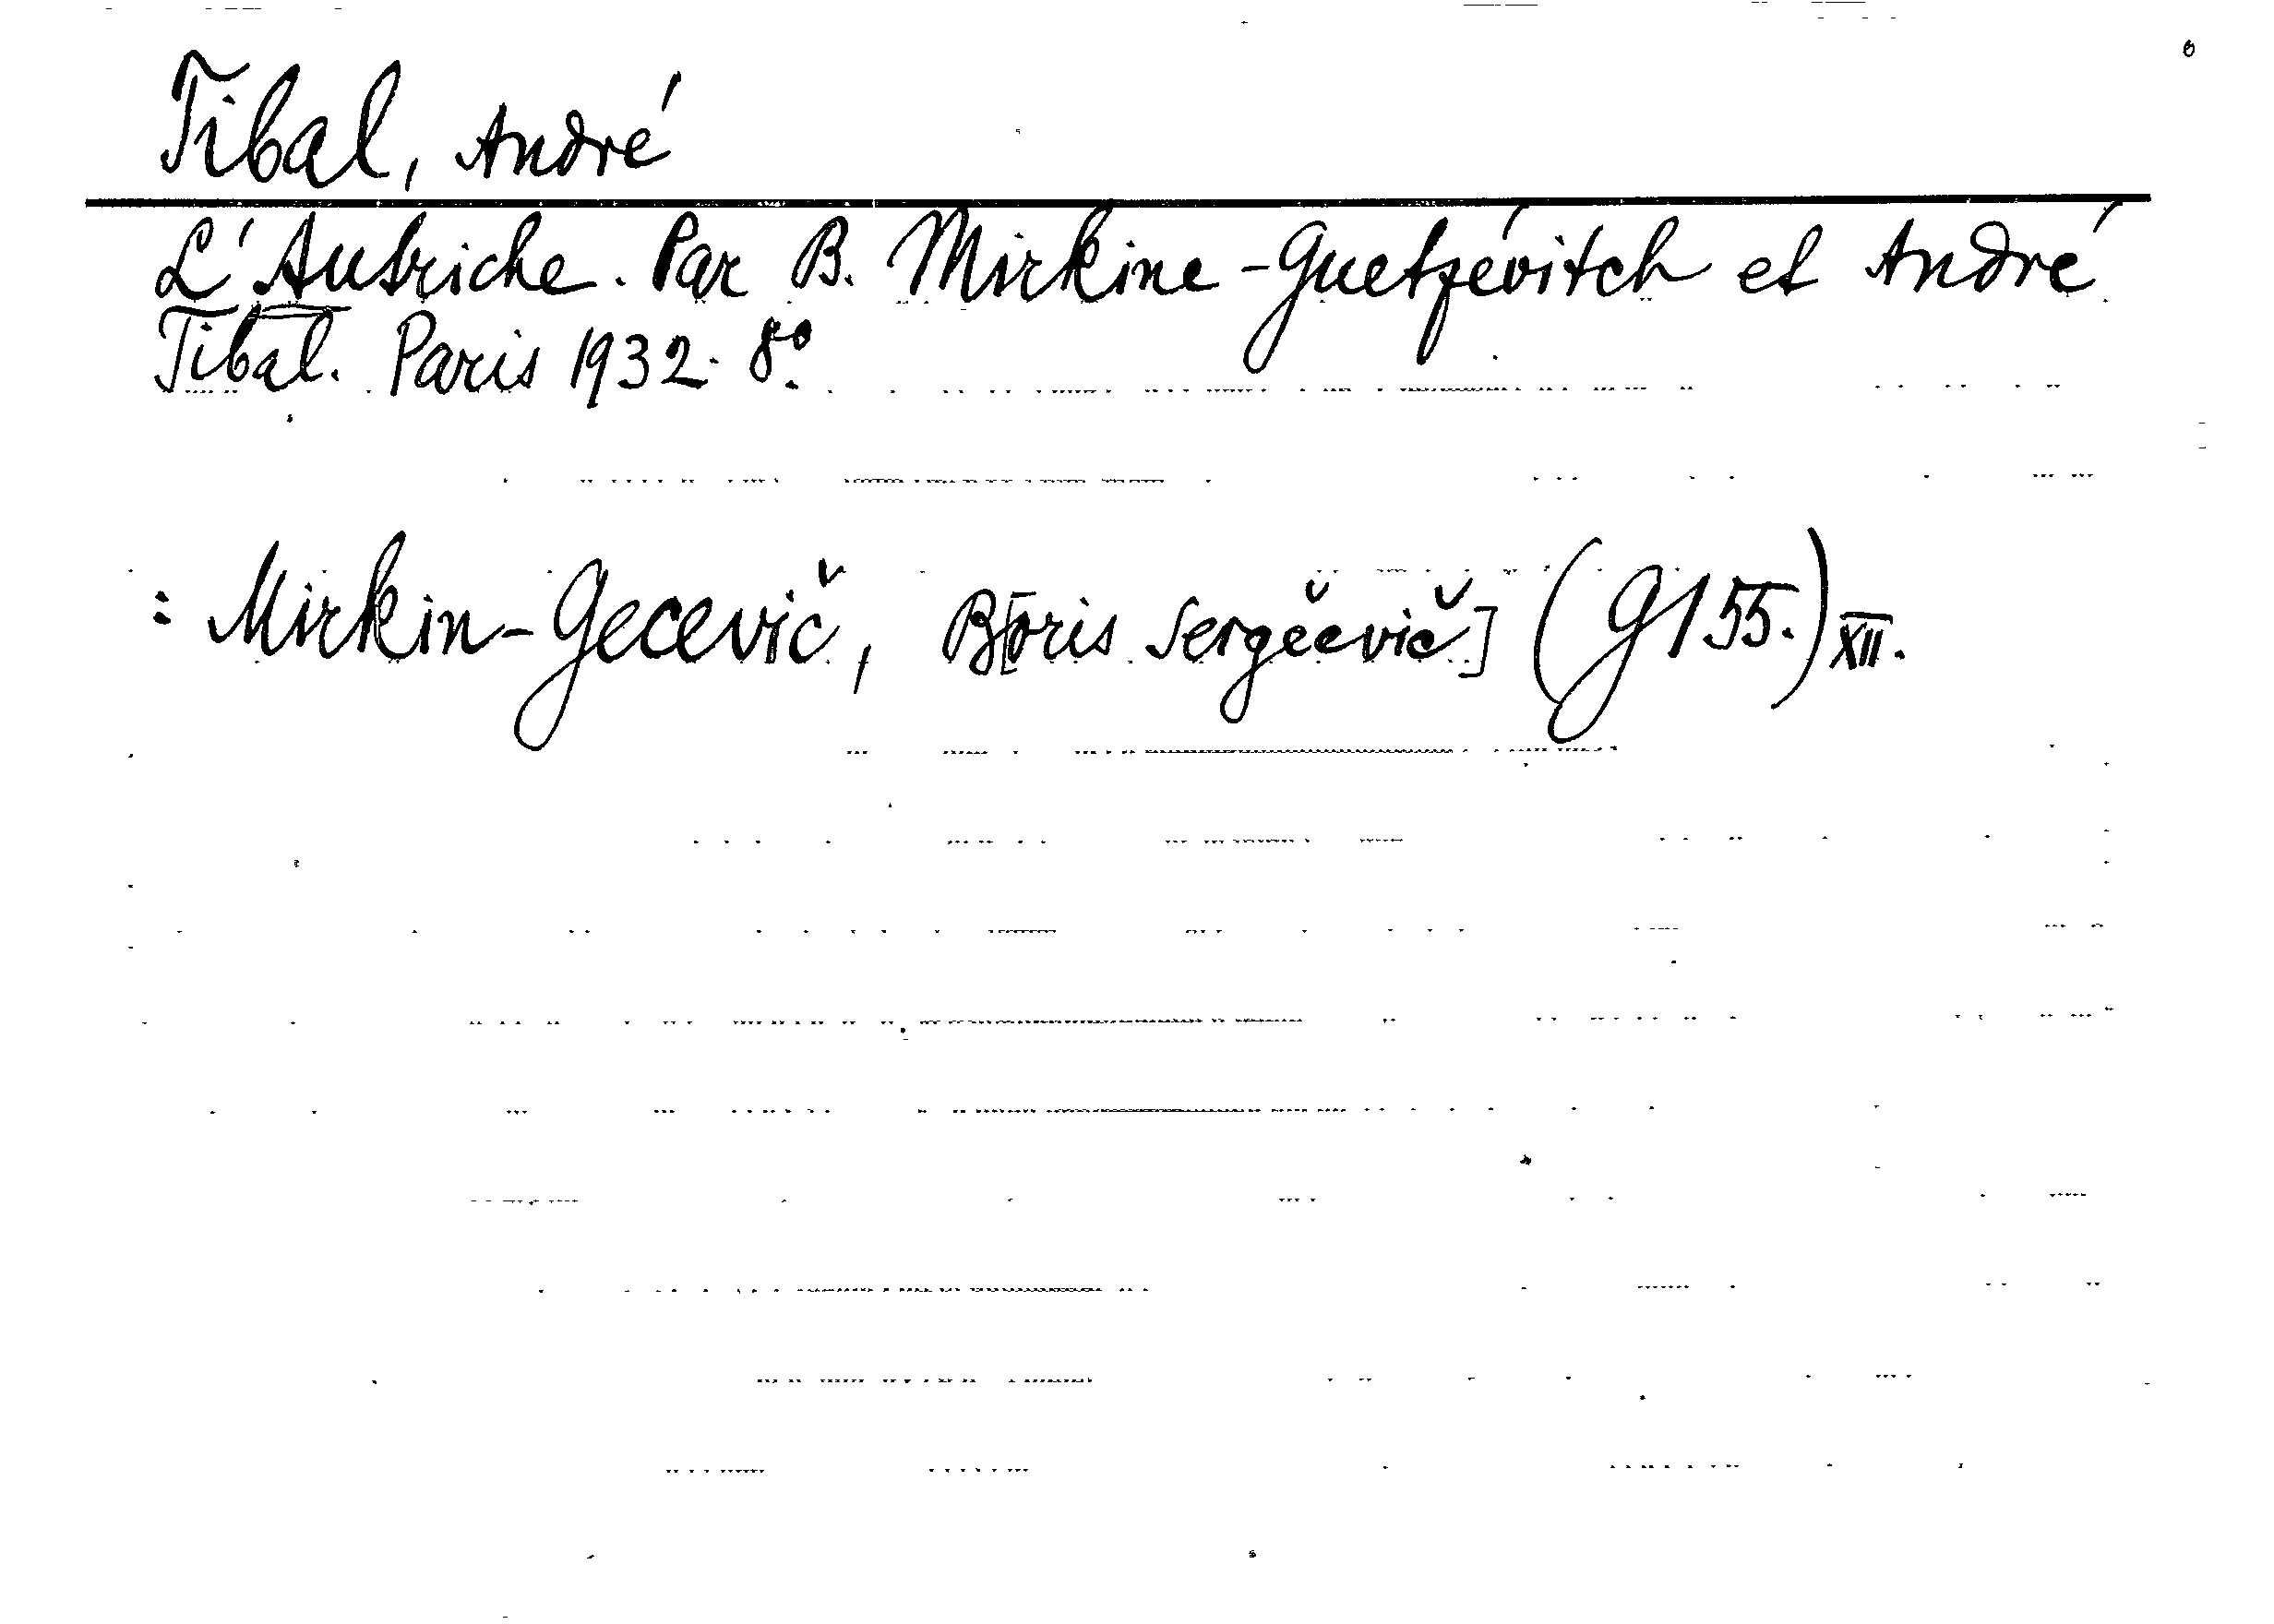 Tibal, André
L'Autriche. Par B. Mirkine-Guetzévitch et André
Tibal. Paris 1932. 8°.
: Mirkin-Gecevič, B[oris Sergěevič] (G155.) XII.